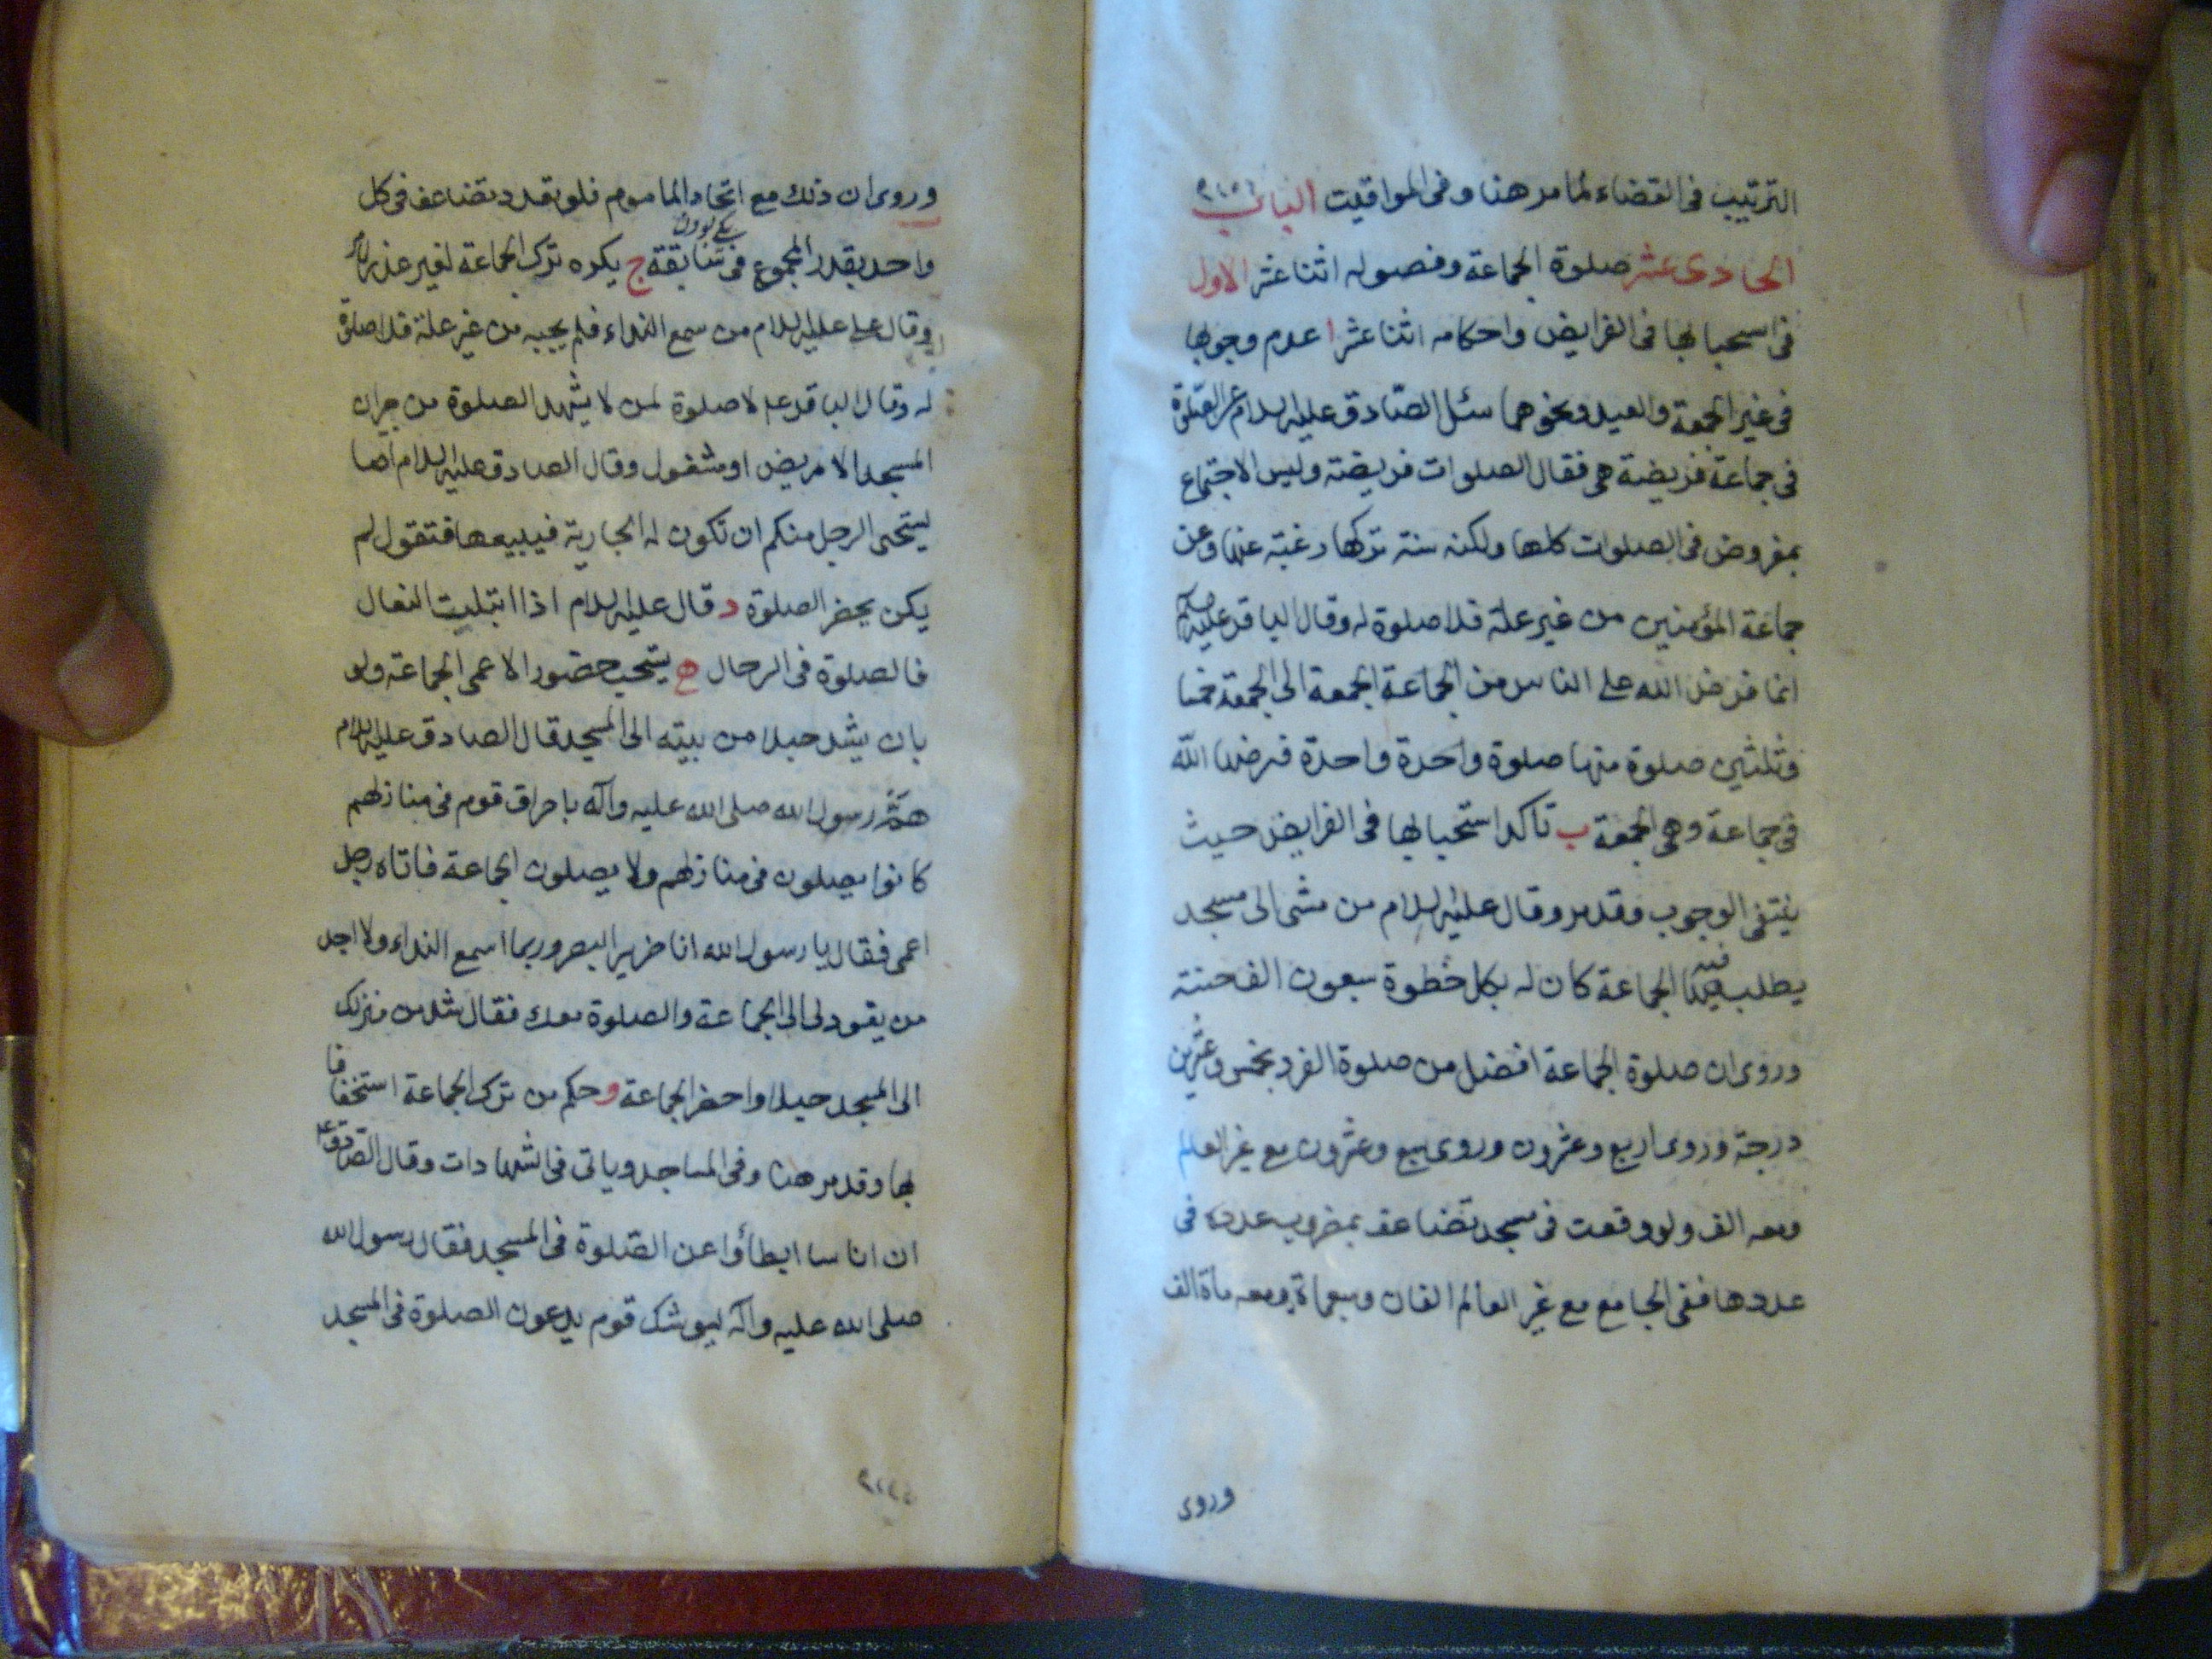 الترتيب فى القضاء لما مر هنا وفى المواقيت الباب
الحادى عشر صلوة الجماعة وفصوله اثنا عشر الاول
فى استحبابها فى الفرايض واحكامه اثنا عشر ا عدم وجوبها
فى غير الجمعة والعيد ونحوهما سئل الصادق عليه السلام عن الصلوة
فى جماعة فريضة هى فقال الصلوات فريضة وليس الاجتماع
بمفروض فى الصلوات كلها ولكنه سنة تركها رغبة عنها وعن
جماعة المؤمنين من غير علة فلا صلوة له وقال الباقر عليه السلم
انما فرض الله على الناس من الجماعة الجمعة الى الجمعة خمسا
وثلثين صلوة منها صلوة واحدة واحدة فرضها الله
فى جماعة وهى الجمعة ب تاكد استحبابها فى الفرايض حيث
ينتفى الوجوب وقد مر وقال عليه السلام من مشى الى مسجد
يطلب فيه الجماعة كان له بكل خطوة سبعون الف حسنة
وروى ان صلوة الجماعة افضل من صلوة الفرد بخمس وعشرين
درجة وروى اربع وعشرون وروى سبع وعشرون مع غير العالم
ومعه الف ولو وقعت فى مسجد تضاعف بمضروب عدده فى
عددها ففى الجامع مع غير العالم الفان وسبعماة ومعه ماة الف
وروى
وروى ان ذلك مع اتحاد الماموم فلو تعدد تضاعف فى كل
واحد بقدر المجموع فى سابقة ج يكره ترك الجماعة لغير عذر
وقال على عليه السلام من سمع النداء فلم يجبه من غير علة فلا صلوة
له وقال الباقر ع لا صلوة لمن لا يشهد الصلوة من جيران
المسجد الا مريض او مشغول وقال الصادق عليه السلام اما
يستحى الرجل منكم ان تكون له الجارية فيبيعها فتقول لم
يكن يحضر الصلوة د قال عليه السلام اذا ابتليت النعال
فالصلوة فى الرحال ه يستحب حضور الاعمى الجماعة ولو
بان يشد حبلا من بيته الى المسجد قال الصادق عليه السلام
هم رسول الله صلى الله عليه وآله باحراق قوم فى منازلهم
كانوا يصلون فى منازلهم ولا يصلون الجماعة فاتاه رجل
اعمى فقال يا رسول الله انا ضرير البصر وربما اسمع النداء ولا اجد
من يقودنى الى الجماعة والصلوة معك فقال شد من منزلك
الى المسجد حبلا واحضر الجماعة و حكم من ترك الجماعة استخفافا
بها وقد مر هنا وفى المساجد وياتى فى الشهادات وقال الصادق ع
ان اناسا ابطأوا عن الصلوة فى المسجد فقال رسول الله
صلى الله عليه وآله ليوشك قوم يدعون الصلوة فى المسجد